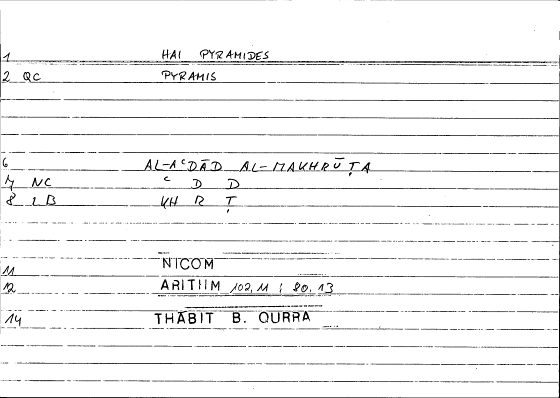 1 HAI PYRAMIDES
2 QC PYRAMIS
6 AL-AʿDĀD AL-MAKHRŪṬA
7 NC ʿ D D
8 1 B KH R Ṭ
11 NICOM
12 ARITHM 102,11 ; 80,13
14 THĀBIT B. QURRA